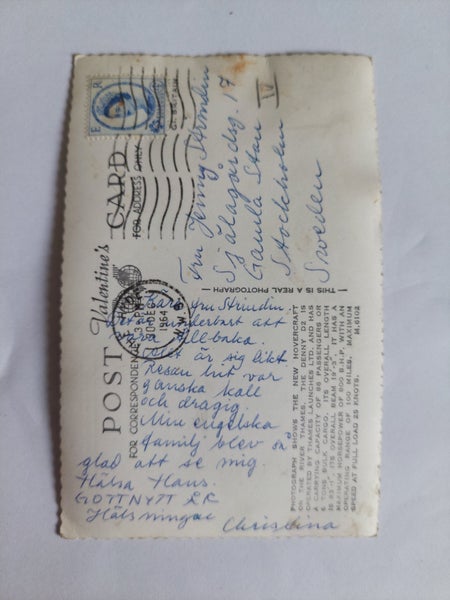 POST CARD
Valentine's
FOR CORRESPONDENCE
FOR ADDRESS ONLY
E R
DEC
1964
Fru Jenny
Själagårdsg. 17
Gamla Stan
Stockholm
Sweden
— THIS IS A REAL PHOTOGRAPH —
Kära fru
underbart att
vara tillbaka.
Allt är sig likt
Resan hit var
ganska kall
och dragig.
Min engelska
familj blev så
glad att se mig.
Hälsa Hans.
GOTT NYTT ÅR
Hälsningar
Christina
PHOTOGRAPH SHOWS THE NEW HOVERCRAFT
ON THE RIVER THAMES. THE DENNY D2 IS
OPERATED BY THAMES LAUNCHES LTD. AND HAS
A CARRYING CAPACITY OF 88 PASSENGERS OR
6 TONS BULK CARGO. ITS OVERALL LENGTH
IS 83'-1", ITS OVERALL BEAM 19'-3". IT HAS A
MAXIMUM HORSEPOWER OF 800 B.H.P. WITH AN
OPERATING RANGE OF 100 MILES. MAXIMUM
SPEED AT FULL LOAD 25 KNOTS. H.6102